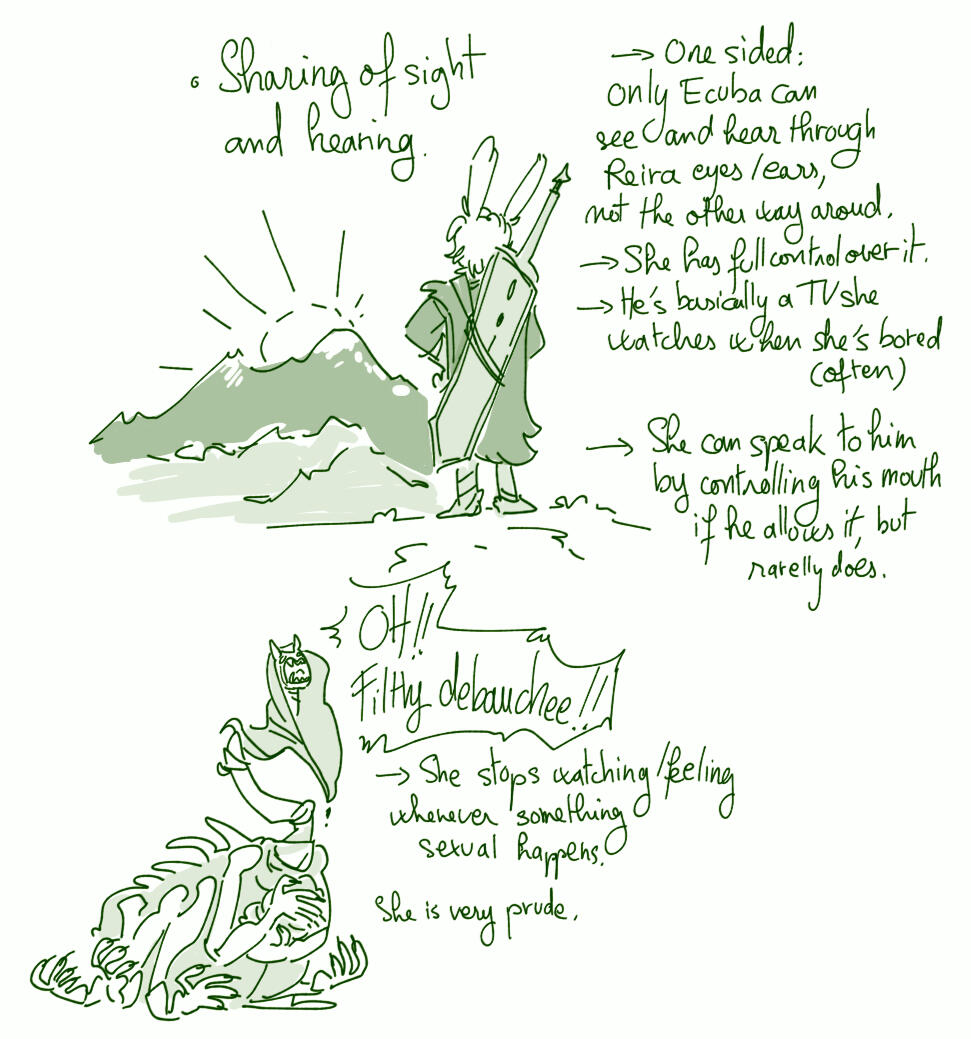 • Sharing of sight
and hearing.
→ One sided:
only Ecuba can
see and hear through
Reira eyes/ears,
not the other way aroud.
→ She has full control over it.
→ He's basically a TV she
watches when she's bored
(often)
→ She can speak to him
by controlling his mouth
if he allows it, but
rarelly does.
OH!!
Filthy debauchee!!!
→ She stops watching/feeling
whenever something
sexual happens.
She is very prude.